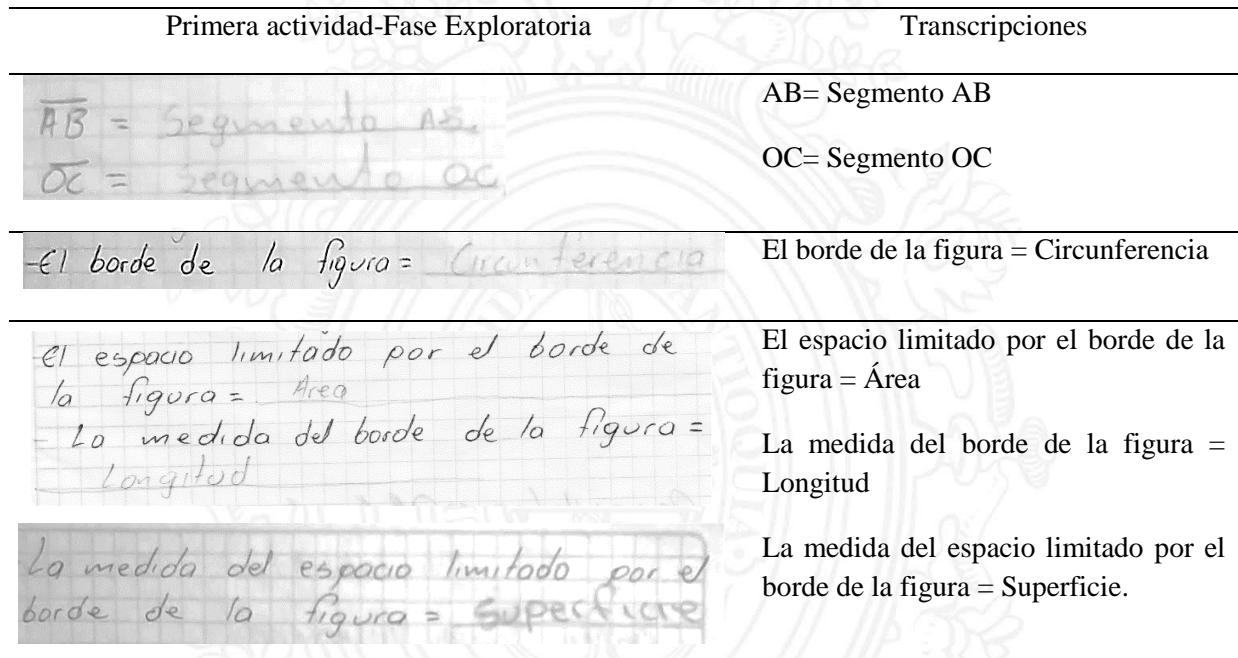 Primera actividad-Fase Exploratoria
Transcripciones
A̅B̅ = Segmento AB.
O̅C̅ = Segmento OC.
AB= Segmento AB
OC= Segmento OC
-El borde de la figura = Circunferencia
El borde de la figura = Circunferencia
El espacio limitado por el borde de
la figura = Area
- La medida del borde de la figura =
Longitud
El espacio limitado por el borde de la
figura = Área
La medida del borde de la figura =
Longitud
La medida del espacio limitado por el
borde de la figura = Superficie
La medida del espacio limitado por el
borde de la figura = Superficie.